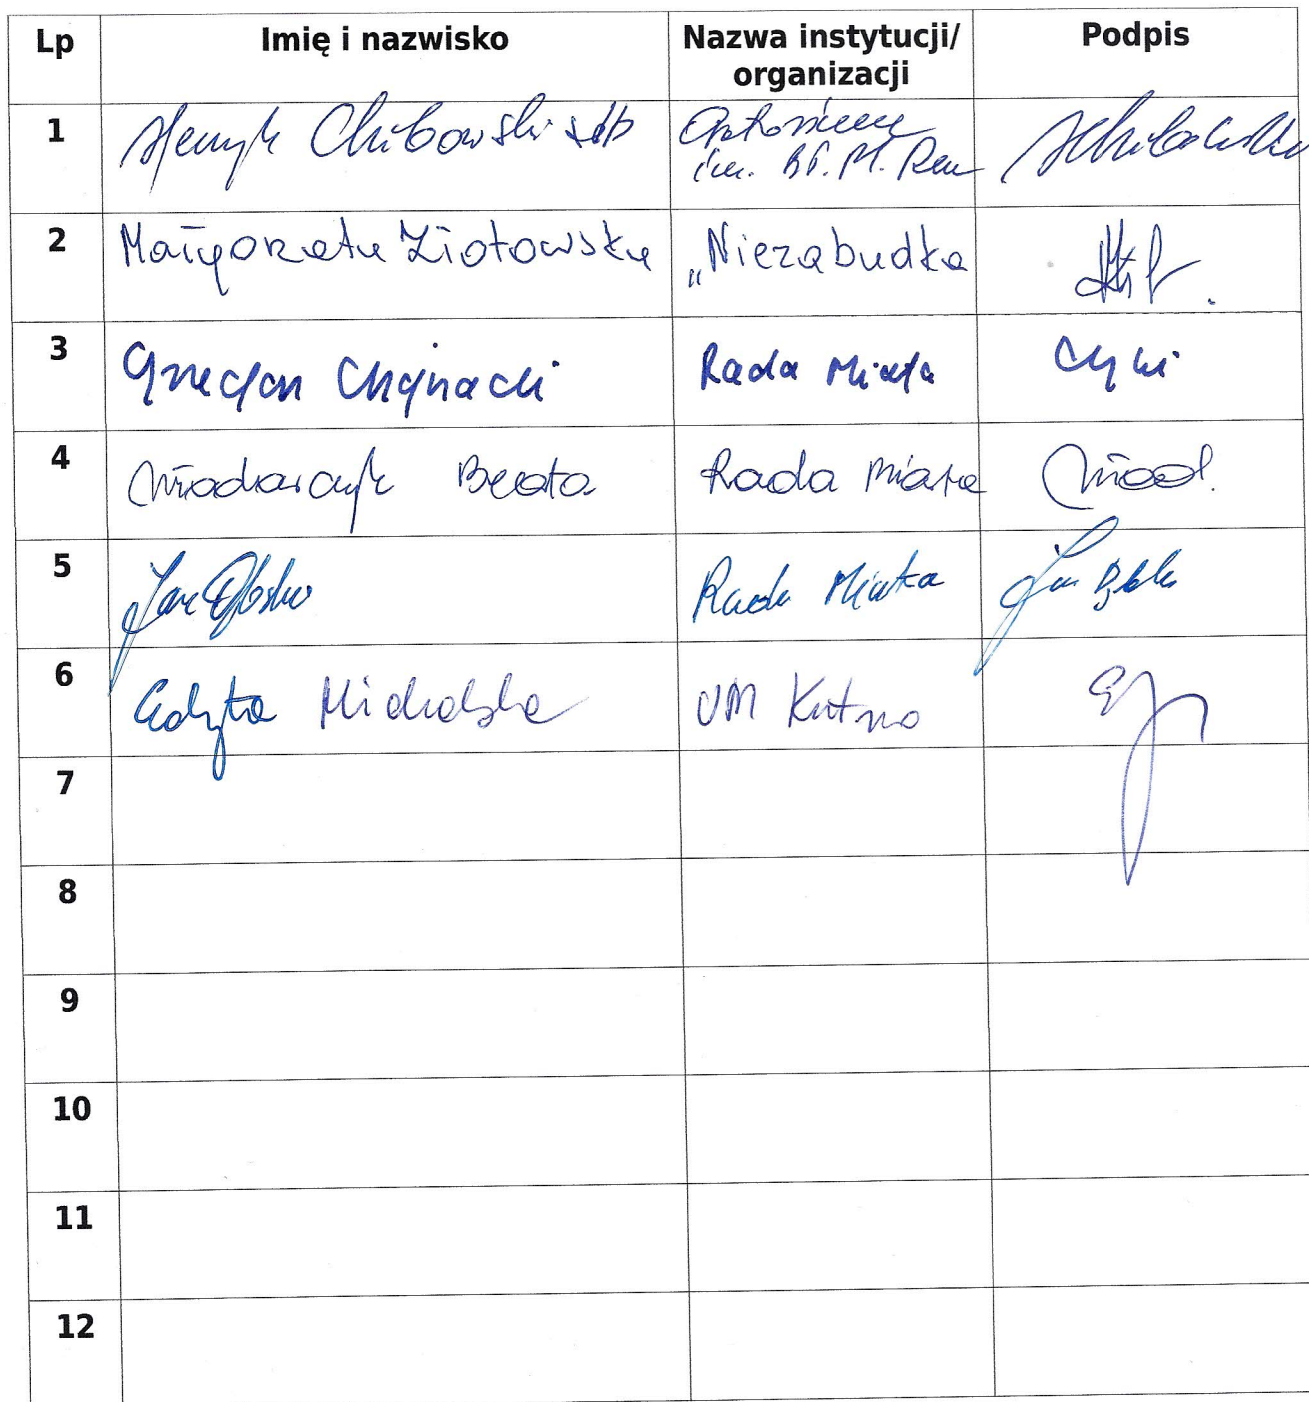 Lp Imię i nazwisko Nazwa instytucji/ organizacji Podpis
1 Henryk Chibowski sdb im. Bł. M. Rua
2 Małgorzata Ziółowska „Niezabudka
3 Grzegorz Chojnacki Rada Miasta
4 Włodarczyk Beata Rada Miasta Włod.
5 Jan Rada Miasta Jan
6 Edyta Michalska UM Kutno
7
8
9
10
11
12